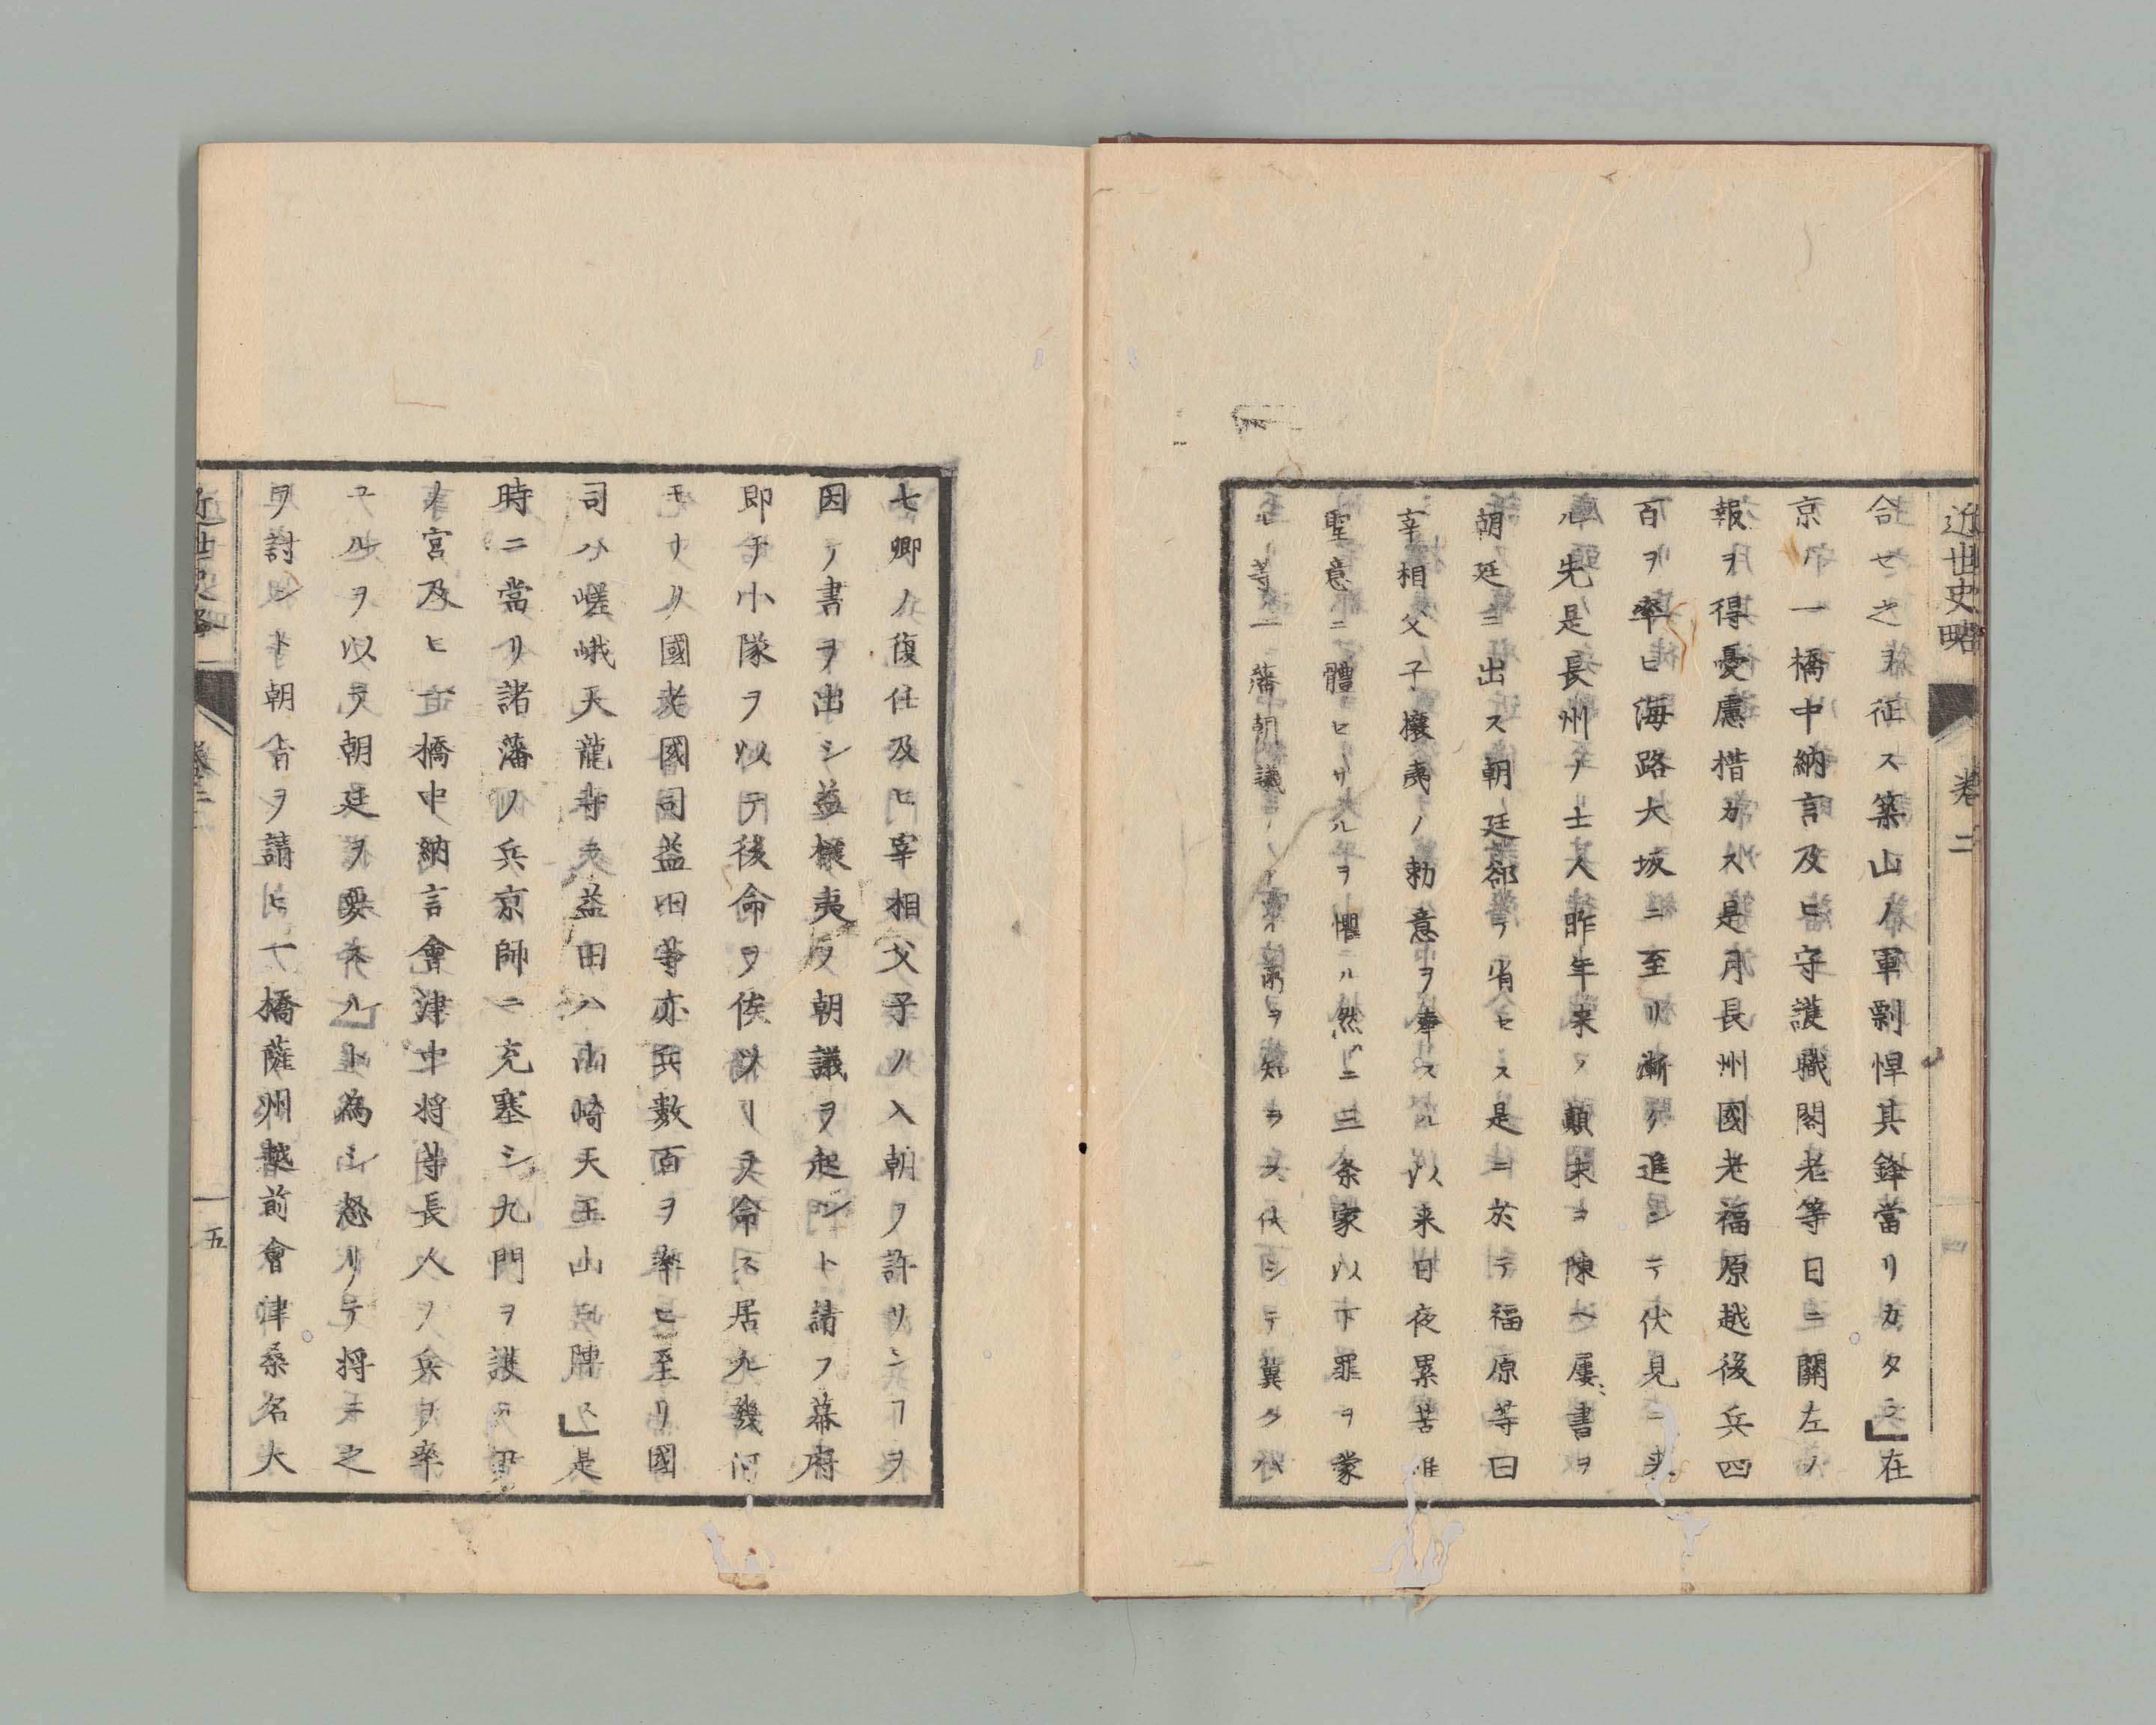 近世史略 卷二
合セ之ヲ征ス築山ノ軍剽悍其鋒當リカタシ」在
京ノ一橋中納言及ヒ守護職閣老等日ニ關左ノ
報ヲ得憂慮措カス是月長州國老福原越後兵四
百ヲ率ヒ海路大坂ニ至リ漸ク進ンテ伏見ニ来
ル先是長州ノ士人昨年来ノ顛末ヲ陳ヘ屢書ヲ
朝廷ニ出ス朝廷郤テ省セス是ニ於テ福原等曰
宰相父子攘夷ノ勅意ヲ奉スル以来日夜累苦唯
聖意ニ體ヒサルヲ懼ル然ルニ三条家以下罪ヲ蒙
ル等一藩朝議ノ在所ヲ知ラス伏シテ冀クハ
七卿ノ復任及ヒ宰相父子ノ入朝ヲ許サンヿヲ
因テ書ヲ出シ益攘夷ノ朝議ヲ起ント請フ幕府
即チ小隊ヲ以テ後命ヲ俟ツヿヲ命ス居ル幾何
モナク國老國司益田等亦兵數百ヲ率ヒ至リ國
司ハ嵯峨天龍寺ニ益田ハ山崎天王山ニ陣ス」是
時ニ當リ諸藩ノ兵京師ニ充塞シ九門ヲ護ス尹
ノ宮及ヒ一橋中納言會津中将等長人ノ兵ヲ率
ユルヲ以テ朝廷ヲ要スルト為シ怒リテ将ニ之
ヲ討ント朝旨ヲ請ヒ一橋薩州越前會津桑名大
近世史略 卷二 五